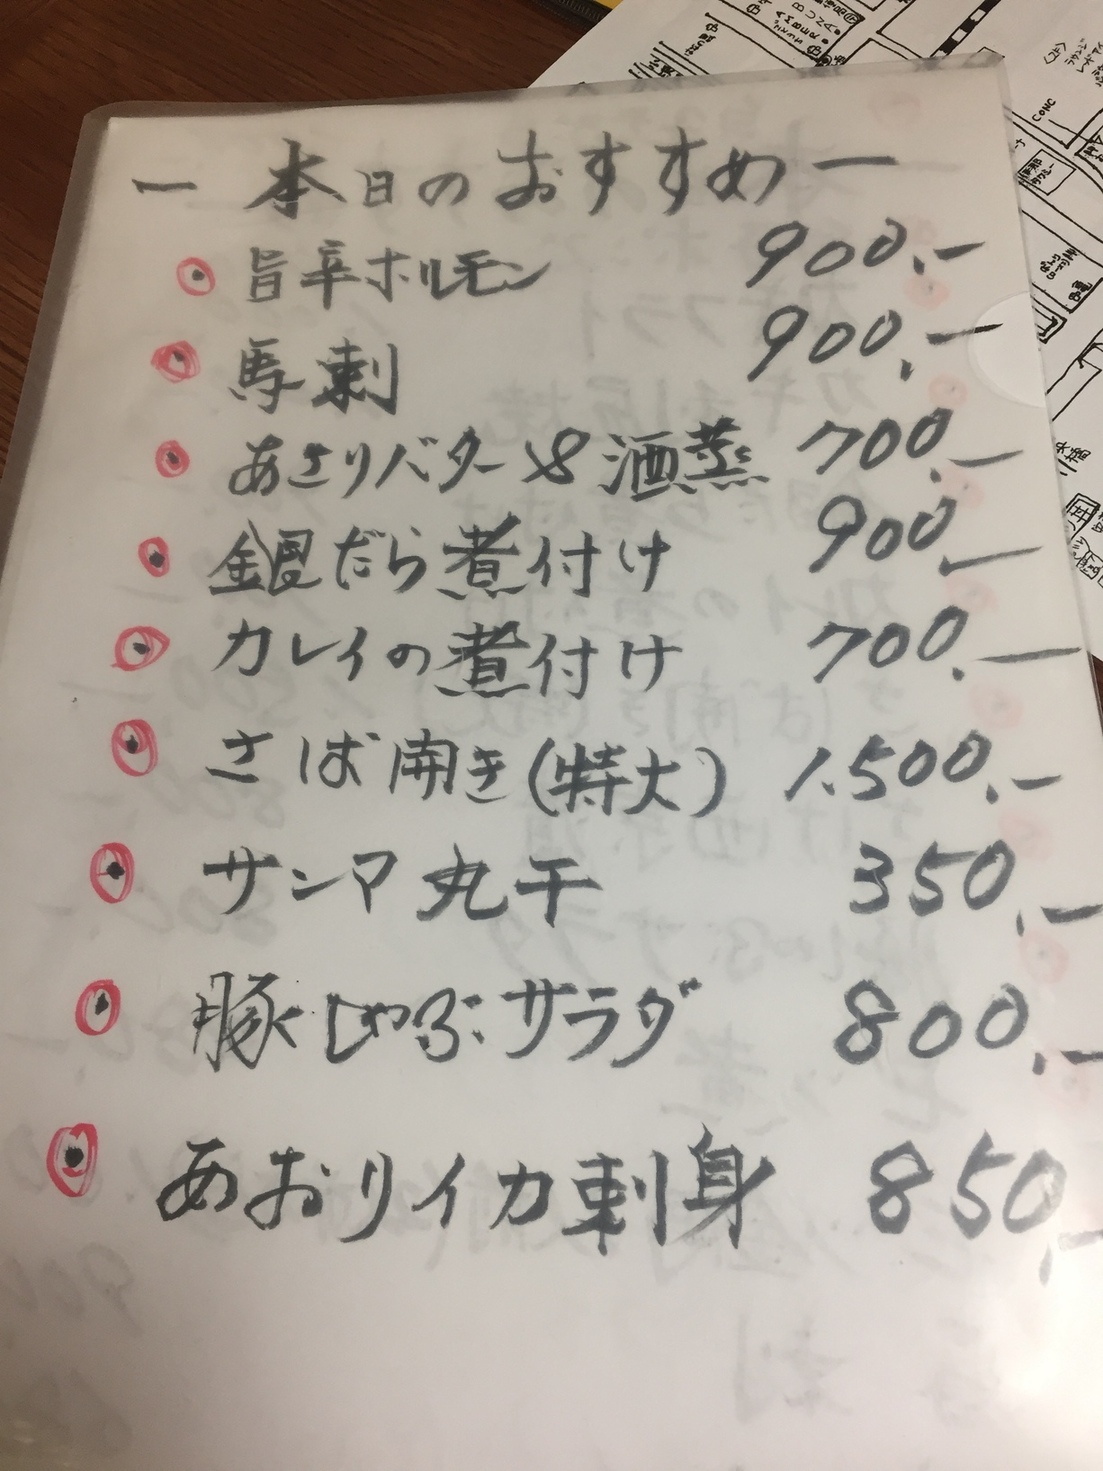 ー 本日のおすすめ ー
旨辛ホルモン 900.-
馬刺 900.-
あさりバター&酒蒸 700.-
銀だら煮付け 900.-
カレイの煮付け 700.-
さば開き(特大) 1.500.-
サンマ丸干 350.-
豚しゃぶサラダ 800.-
あおりイカ刺身 850.-
CONC